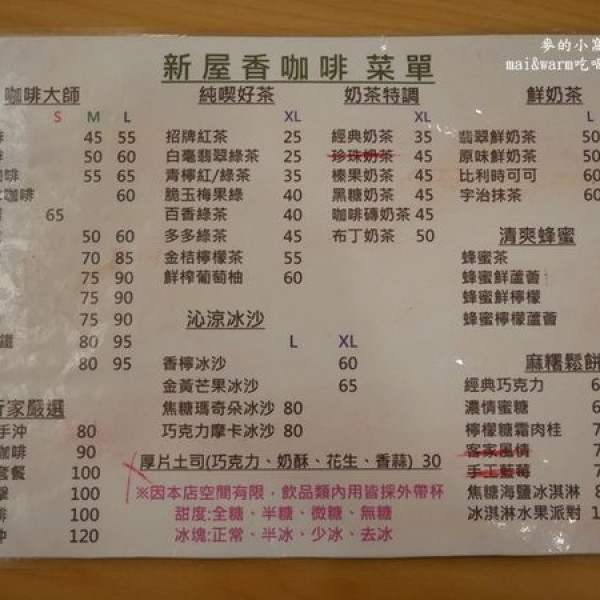 麥的小窩
mai&warm吃喝
新屋香咖啡 菜單
咖啡大師
S M L
45 55
50 60
咖啡 55 65
咖啡 60
65
50 60
70 85
75 90
75 90
75 90
鐵 80 95
80 95
純喫好茶
XL
招牌紅茶 25
白毫翡翠綠茶 25
青檸紅/綠茶 35
脆玉梅果綠 40
百香綠茶 40
多多綠茶 45
金桔檸檬茶 55
鮮榨葡萄柚 60
奶茶特調
XL
經典奶茶 35
珍珠奶茶 45
榛果奶茶 45
黑糖奶茶 45
咖啡磚奶茶 45
布丁奶茶 50
鮮奶茶
L
翡翠鮮奶茶 50
原味鮮奶茶 50
比利時可可 60
宇治抹茶 60
清爽蜂蜜
蜂蜜茶
蜂蜜鮮蘆薈
蜂蜜鮮檸檬
蜂蜜檸檬蘆薈
沁涼冰沙
L XL
香檸冰沙 60
金黃芒果冰沙 65
焦糖瑪奇朵冰沙 80
巧克力摩卡冰沙 80
家嚴選
手沖 80
咖啡 90
套餐 100
100
啡 100
沖 120
麻糬鬆餅
經典巧克力
濃情蜜糖
檸檬糖霜肉桂
客家風情
手工藍莓
焦糖海鹽冰淇淋
冰淇淋水果派對
厚片土司(巧克力、奶酥、花生、香蒜) 30
※因本店空間有限,飲品類內用皆採外帶杯
甜度:全糖、半糖、微糖、無糖
冰塊:正常、半冰、少冰、去冰